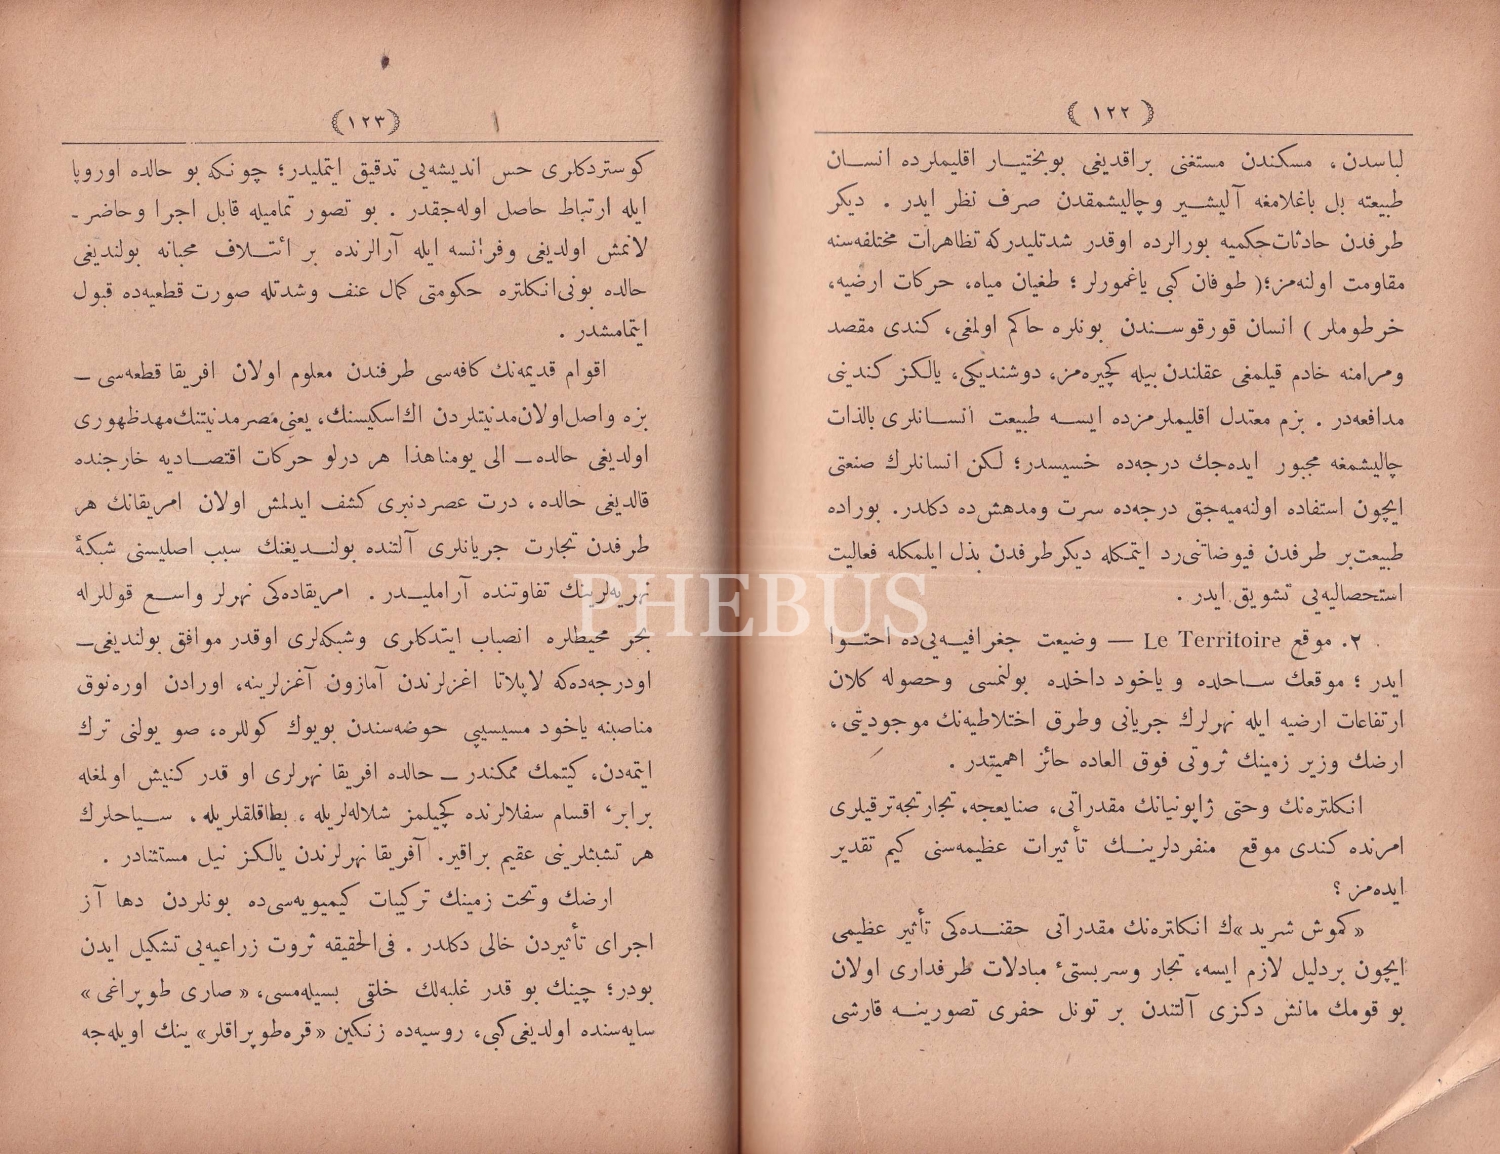 ( ١٢٢ )
لباسدن، مسكندن مستغنى براقديغى بوبختيار اقليملرده انسان
طبيعته بل باغلامغه آليشير وچاليشمقدن صرف نظر ايدر . ديكر
طرفدن حادثات حكميه بورالرده اوقدر شدتليدركه تظاهرات مختلفه‌سنه
مقاومت اولنه‌مز؛( طوفان كبى ياغمورلر ؛ طغيان مياه، حركات ارضيه،
خرطوملر ) انسان قورقوسندن بونلره حاكم اولمغى، كندى مقصد
ومرامنه خادم قيلمغى عقلندن بيله كچيره‌مز، دوشنديكى، يالكز كندينى
مدافعه‌در . بزم معتدل اقليملرمزده ايسه طبيعت انسانلرى بالذات
چاليشمغه مجبور ايده‌جك درجه‌ده خسيسدر؛ لكن انسانلرك صنعتى
ايچون استفاده اولنه‌ميه‌جق درجه‌ده سرت ومدهش‌ده دكلدر. بوراده
طبيعت‌بر طرفدن فيوضاتنى‌رد ايتمكله ديكرطرفدن بذل ايلمكله فعاليت
استحصاليه‌يى تشويق ايدر .
٢. موقع Le Territoire — وضيعت جغرافيه‌يى‌ده احتوا
ايدر ؛ موقعك ساحلده و ياخود داخلده بولنمسى وحصوله كلان
ارتفاعات ارضيه ايله نهرلرك جريانى وطرق اختلاطيه‌نك موجوديتى،
ارضك وزير زمينك ثروتى فوق العاده حائز اهميتدر .
انكلتره‌نك وحتى ژاپونيانك مقدراتى، صنايعجه، تجارتجه‌ترقيلرى
امرنده كندى موقع منفردلرينك تأثيرات عظيمه‌سنى كيم تقدير
ايده‌مز ؟
«كموش شريد»ك انكلتره‌نك مقدراتى حقنده‌كى تأثير عظيمى
ايچون بردليل لازم ايسه، تجار وسربستىٔ مبادلات طرفدارى اولان
بو قومك مانش دكزى آلتندن بر تونل حفرى تصورينه قارشى
( ١٢٣ )
كوستردكلرى حس انديشه‌يى تدقيق ايتمليدر؛ چونكه بو حالده اوروپا
ايله ارتباط حاصل اوله‌جقدر . بو تصور تماميله قابل اجرا وحاضر-
لانمش اولديغى وفرانسه ايله آرالرنده بر ائتلاف محبانه بولنديغى
حالده بونى‌انكلتره حكومتى كمال عنف وشدتله صورت قطعيه‌ده قبول
ايتمامشدر .
اقوام قديمه‌نك كافه‌سى طرفندن معلوم اولان افريقا قطعه‌سى —
بزه واصل‌اولان‌مدنيتلردن اك‌اسكيسنك، يعنى‌مصرمدنيتنك‌مهدظهورى
اولديغى حالده — الى يومناهذا هر درلو حركات اقتصاديه خارجنده
قالديغى حالده، درت عصردنبرى كشف ايدلمش اولان امريقانك هر
طرفدن تجارت جريانلرى آلتنده بولنديغنك سبب اصليسنى شبكهٔ
نهريه‌لرينك تفاوتنده آرامليدر . امريقاده‌كى نهرلر واسع قوللرله
بحر محيطلره انصباب ايتدكلرى وشبكه‌لرى اوقدر موافق بولنديغى —
اودرجه‌ده‌كه لاپلاتا اغزلرندن آمازون آغزلرينه، اورادن اوره‌نوق
مناصبنه ياخود مسيسيپى حوضه‌سندن بويوك كوللره، صو يولنى ترك
ايتمه‌دن، كيتمك ممكندر — حالده افريقا نهرلرى او قدر كنيش اولمغله
برابر، اقسام سفلالرنده كچيلمز شلاله‌لريله ، بطاقلقلريله، سياحلرك
هر تشبثلرينى عقيم براقير. آفريقا نهرلرندن يالكز نيل مستثنادر .
ارضك وتحت زمينك تركيبات كيميويه‌سى‌ده بونلردن دها آز
اجراى تأثيردن خالى دكلدر . فى‌الحقيقه ثروت زراعيه‌يى تشكيل ايدن
بودر؛ چينك بو قدر غلبه‌لك خلقى بسيله‌مسى، « صارى طوپراغى »
سايه‌سنده اولديغى‌كبى، روسيه‌ده زنكين «قره‌طوپراقلر» ينك اويله‌جه
PHEBUS